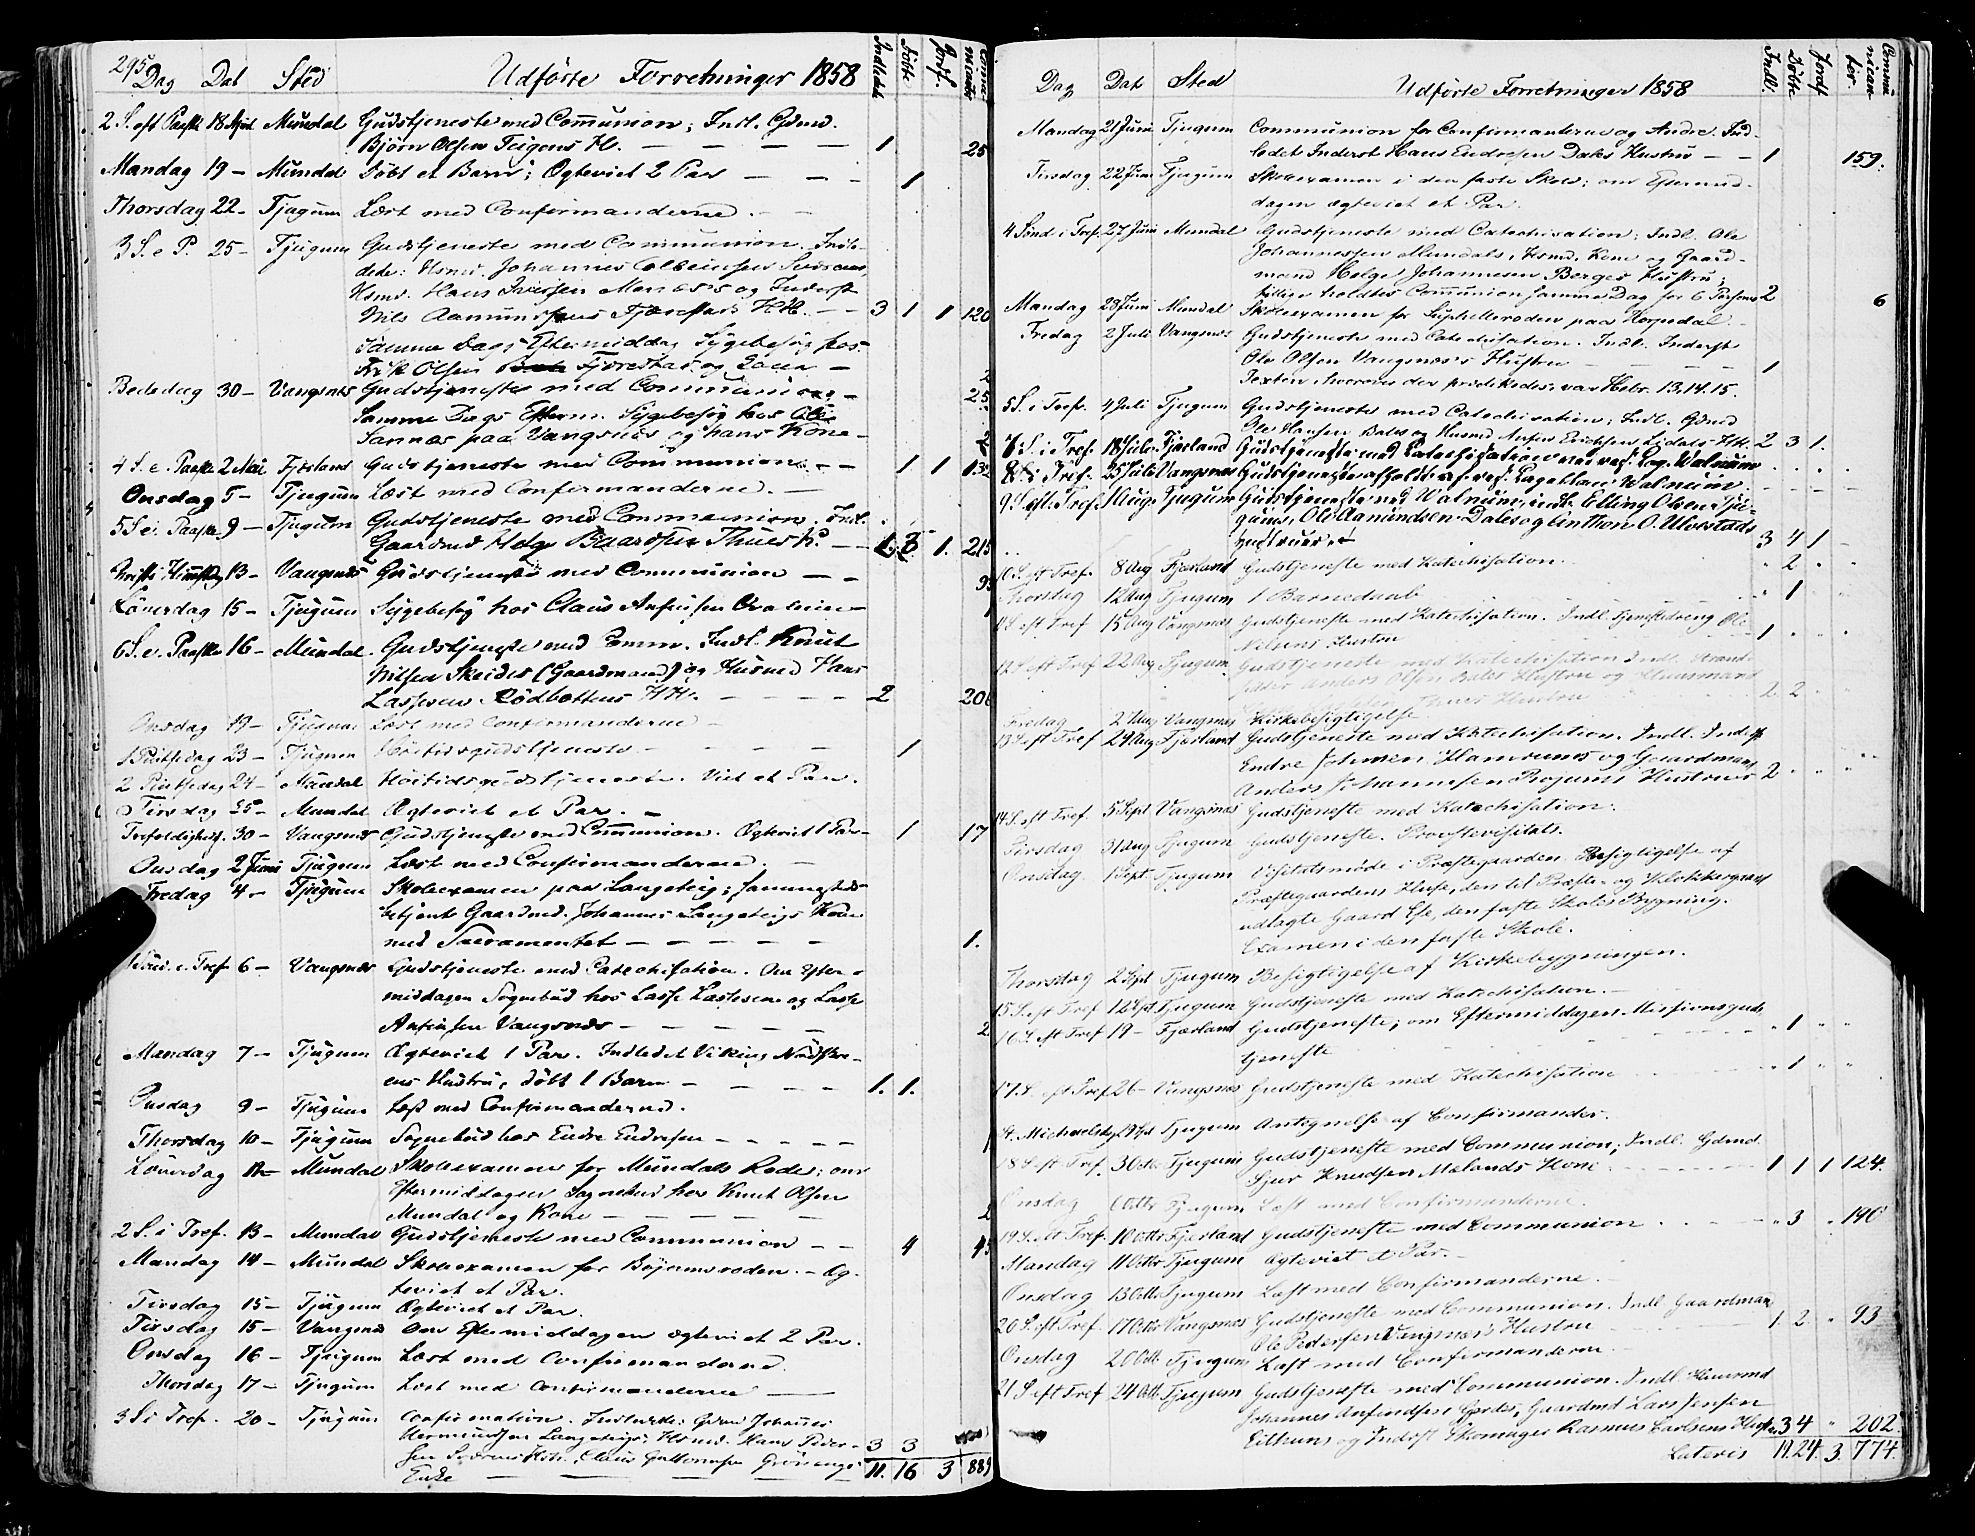 295
Dag Dat Sted Udførte Forretninger 1858 Indledede Døbte Jordf. Communicanter
2 S. eft Paaske 18 April Mundal Gudstjeneste med Communion; Indl. Gdmd.
Bjørn Olsen Teigens H. — — — — 1 25
Mandag 19 — Mundal Døbt et Barn; Ægteviet 2 Par — — — 1
Thorsdag 22 — Tjugum Læst med Confirmanderne. — —
3 S. e P. 25 — Tjugum Gudstjeneste med Communion. Indle-
dede: Hsmd. Johannes
Hsmd. Hans Iversen Menæs's og Inderst
Nils Aamundsens Fjærestads HH. — — 3 1 1 120
Samme Dags Eftermiddag Sygebesøg hos
Erik Olsen Fjærestad og Kone — 2
Bededag 30 — Vangsnes Gudstjeneste med Communion — 25
Samme Dags Efterm. Sygebesøg hos Ole
Sannæs paa Vangsnes og hans Kone — 2
4 S. e. Paaske 2 Mai Fjærland Gudstjeneste med Communion — — 1 1 132
Onsdag 5 — Tjugum Læst med Confirmanderne. —
5 S. e. Paaske 9 — Tjugum Gudstjeneste med Communion. Indl.
Gaardmd Helge Baardsen Thues H. — 1. 3 1. 215
Christi Himmelf. 13 — Vangsnes Gudstjeneste med Communion — —
Löverdag 15 — Tjugum Sygebesøg hos Claus Anfinsen — 1
6 S. e. Paaske 16 — Mundal. Gudstjeneste med Comm. Indl. Knut
Nilsen Skeides (Gaardmand) og Husmd Hans
Lassesens Rødbottens HH. — — — — 2 206
Onsdag 19 — Tjugum Læst med Confirmanderne —
1 Pintsedag 23 — Tjugum Høitidsgudstjeneste — — — — 1
2 Pintsedag 24 — Mundal Høitidsgudstjeneste. Viet et Par.
Tirsdag 25 — Mundal Ægteviet et Par. —
Trefoldighedsf. 30 — Vangsnes Gudstjeneste med Communion. Ægteviet 1 Par — 1 17
Onsdag 2 Juni Tjugum Læst med Confirmanderne. —
Fredag 4 — Tjugum Skoleexamen paa Langeteig; sammesteds
betjent Gaardmd. Johannes Langeteigs Kone
med Sacramentet — — — — — 1.
1 Sönd. e. Tref. 6 — Vangsnes Gudstjeneste med Catechisation. Om Efter-
middagen Sognebud hos Lasse Lassesen og Lasse
Anfinsen Vangsnes — — — — 2
Mandag 7 — Tjugum Ægteviet 1 Par. Indledet Viking
ens Hustru, døbt 1 Barn — — — — 1. 1.
Onsdag 9 — Tjugum Læst med Confirmanderne.
Thorsdag 10 — Tjugum Sognebud hos Endre Endresen — — — — 1
Löverdag 12 — Mundal Skoleexamen for Mundals Rode; om
Eftermiddagen Sognebud hos Knut Olsen
Mundal og Kone — — — — 2
2 S. i Tref. 13 — Mundal Gudstjeneste med Communion — — 4 45
Mandag 14 — Mundal Skoleexamen for Bøjumsroden. — Æg-
teviet et Par.
Tirsdag 15 — Tjugum Ægteviet et Par.
Tirsdag 15 — Vangsnes Om Eftermiddagen ægteviet 2 Par.
Onsdag 16 — Tjugum Læst med Confirmanderne.
Thorsdag 17 — Tjugum Læst med Confirmanderne —
3 S i Tref. 20 — Tjugum Confirmation. Indledede: Gdmd Johannes
Hermundsen Langeteigs, Hsmd. Hans Peder-
sen Claus 3 3
Enke — — — — 11. 16 3 889
Dag Dat Sted Udførte Forretninger 1858 Indl. Døbte Jordf. Communicanter.
Mandag 21 Juni Tjugum Communion for Confirmanterne og Andre. Ind-
ledet Inderst Hans Endresen Dales Hustru — — 1 159.
Tirsdag 22 Juni Tjugum Skoleexamen i den faste Skole; om Eftermid-
dagen ægteviet et Par.
4 Sönd i Tref. 27 Juni Mundal Gudstjeneste med Catechisation; Indl. Ole
Johannessen Mundals, Hsmd. Kone og Gaard-
mand Helge Johannesen Berges Hustru;
tillige holdtes Communion samme Dag for 6 Personer 2 6
Mandag 28 Juni Mundal Skoleexamen for Suphelleroden paa Horpedal. —
Fredag 2 Juli Vangsnes Gudstjeneste med Catechisation. Indl. Inderst
Ole Olsen Vangsnes's Hustru — — — — 1
Texten, hvorover der prædikedes, var Hebr. 13, 14. 15.
5 S. i Tref. 4 Juli Tjugum Gudstjeneste med Catechisation; Indl. Gdmd
Ole Hansen Bales og Husmd Anfin Eriksen Lidals HH. 2 3 1.
7 S. i Tref. 18 Julii Fjerland Gudstjeneste med Catechisation ved res. Cap. Walnum
8 S. i Tref. 25 Juli Vangsnes Gudstjeneste afholdt af res. Capellan Walnum.
9 S. eft. Tref. 1 Aug. Tjugum Gudstjeneste ved Walnum, indl. Elling Olsen Tju-
gums, Ole Aamundsen Dales og Anthon O. Ulvestads
Hustruer. 3 4 1 —
10 S. eft Tref. 8 Aug Fjærland Gudstjeneste med Katechisation. 2
Thorsdag 12 Aug Tjugum 1 Barnedaab 1
11 S. eft Tref 15 Aug Vangsnes Gudstjeneste med Katechisation. Indl. Tjenestedreng Ole
Nilsens Hustru 1
12 S. eft Tref. 22 Aug Tjugum Gudstjeneste med Katechisation Indl. Strand-
sidder Anders Olsen Bales Hustru og Huusmand
Hustru 2 2
Fredag 27 Aug Vangsnes Kirkebesigtigelse
13 S. eft Tref 29 Aug Fjærland Gudstjeneste med Katechisation. Indl. Inderst
Endre Johnsen Hamrums og Gaardmand
Anders Johannesen Bojums Hustruer 2
14 S. eft Tref. 5 Sept Vangsnes Gudstjeneste med Katechisation.
Tirsdag 31 Aug Tjugum Gudstjeneste. Provstevisitats.
Onsdag 1 Sept Tjugum Visitatsmøde i Præstegaarden. Besigtigelse af
Præstegaardens Huse, den til Præste- og Klokkergaard
udlagte Gaard Ese, den faste Skoles Bygning.
Examen i den faste Skole.
Thorsdag 2 Sept Tjugum Besigtigelse af Kirkebygningen.
15 S. eft Tref 12 Sept Tjugum Gudstjeneste med Katechisation. —
16 S. eft Tref 19 — Fjærland Gudstjeneste; om Eftermiddagen Missionsguds-
tjeneste 1
17 S. eft Tref 26 — Vangsnes Gudstjeneste med Katechisation 1
St. Michaelsdag 29 Sept Tjugum Antegnelse af Confirmander.
18 S. eft Tref. 3 Octbr Tjugum Gudstjeneste med Communion; Indl. Gdmd.
Sjur Knudsen Melands Kone. 1 1 1 124.
Onsdag 6 Octbr Tjugum Læst med Confirmanderne.
19 S. eft Tref. 10 Octbr Fjerland Gudstjeneste med Communion 3 140
Mandag 11 Octbr Tjugum Ægteviet et Par. —
Onsdag 13 Octbr Tjugum Læst med Confirmanderne. —
20 S. eft Tref. 17 Octbr Vangsnes Gudstjeneste med Communion. Indl Gaardmand
Ole Pedersen Vangsnæs's Hustru 1. 2 93
Onsdag 20 Octbr Tjugum Læst med Confirmanderne.
21 S. eft Tref 24 Octbr Tjugum Gudstjeneste med Communion. Indl. Huusmd
Johannes Anfindsen Gjerdes, Gaardmd Lars Jensen
Eitruns og Inderst Skomager Rasmus Carlsens Hustr. 3 4 202.
Lateris 19. 24. 3. 774.